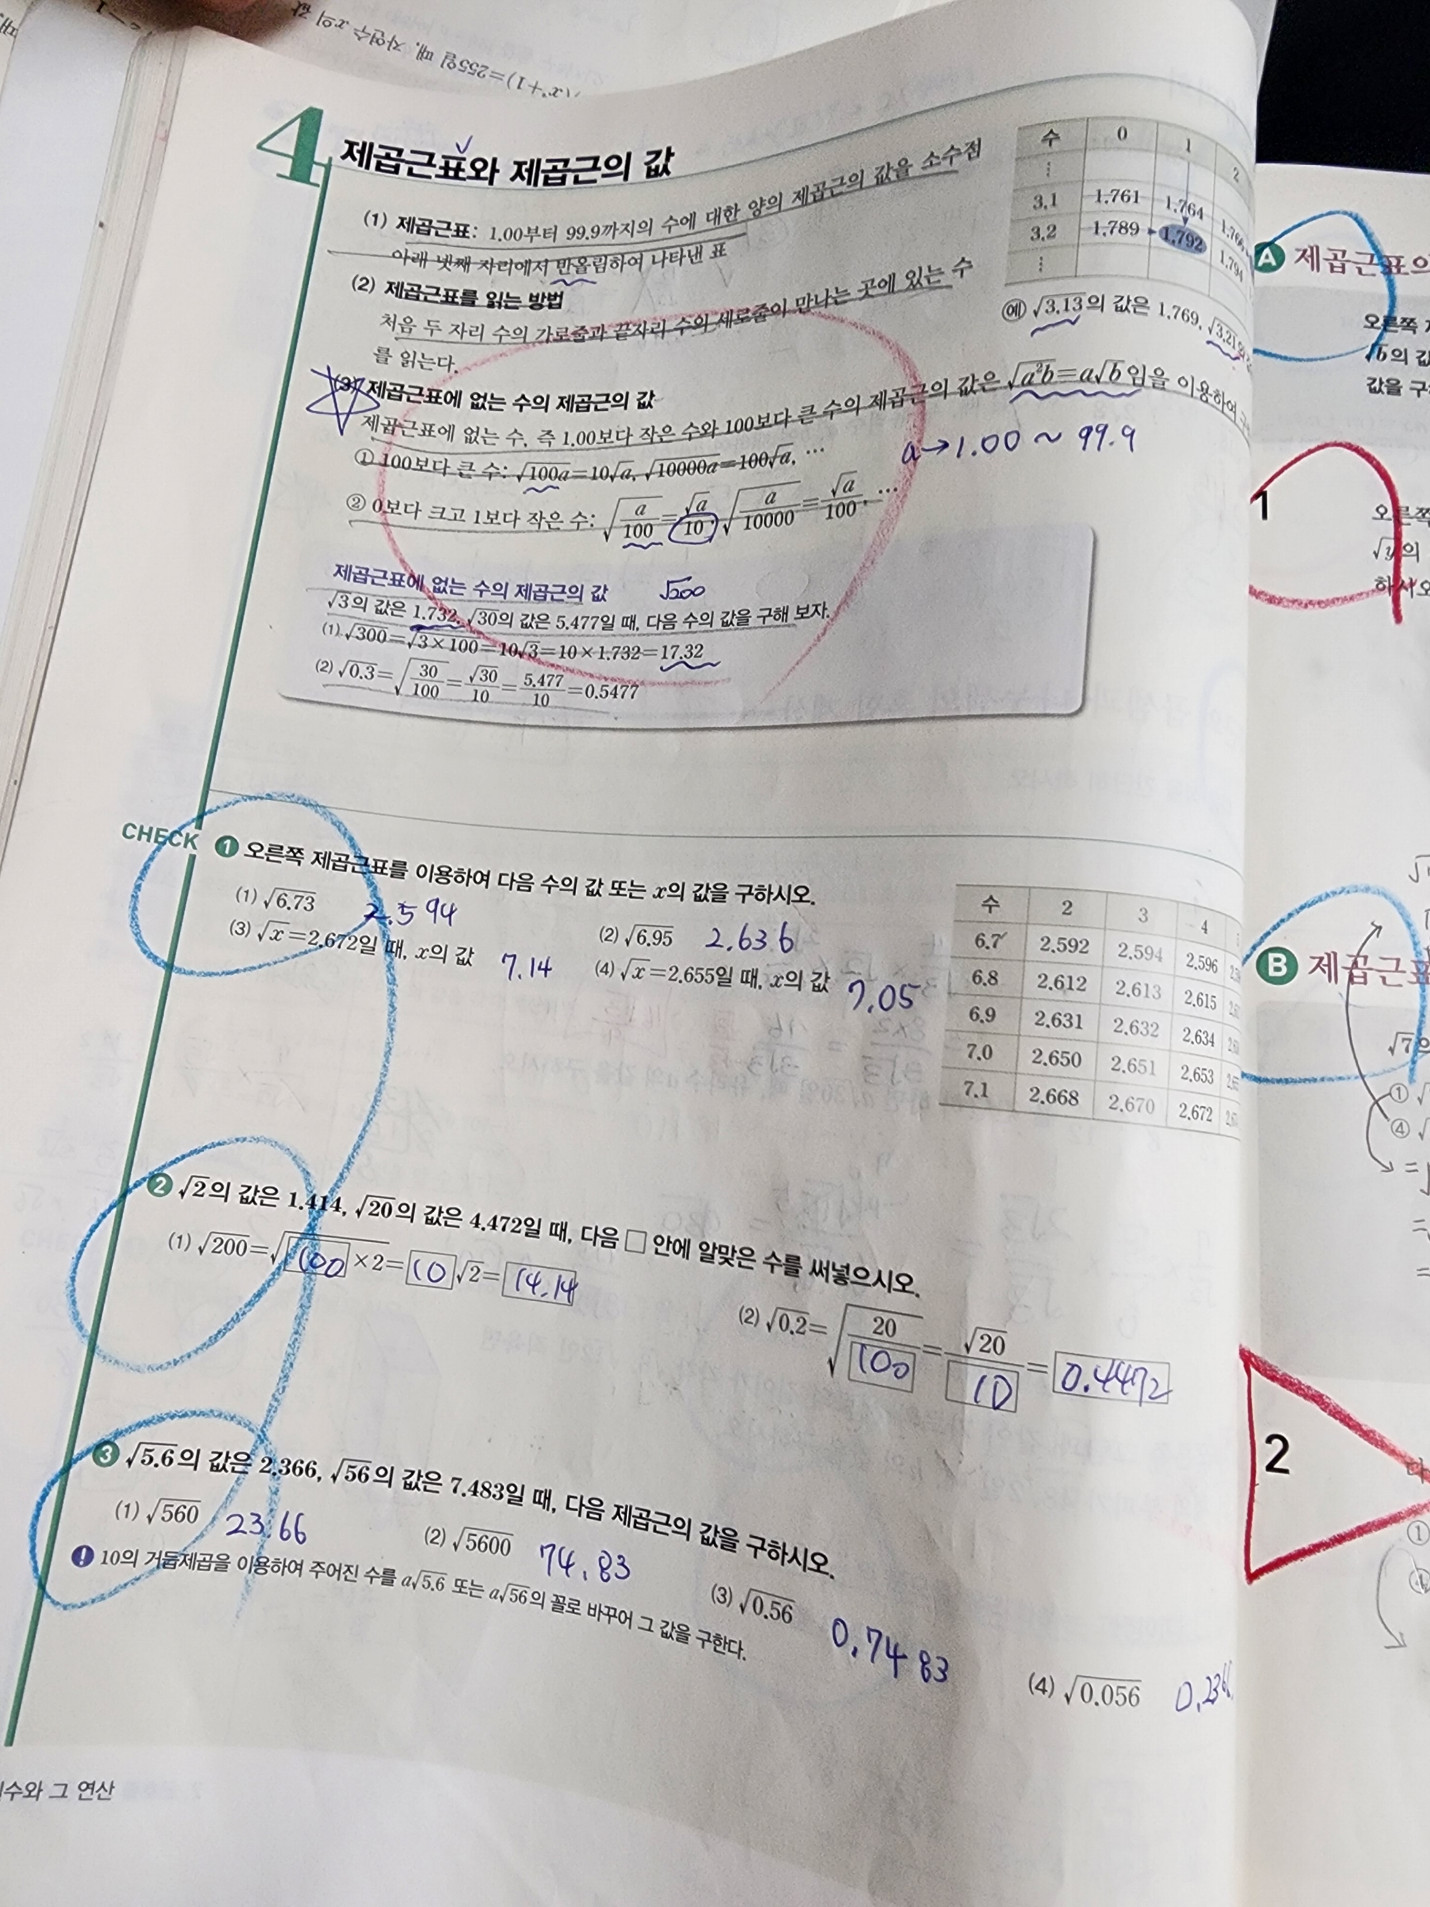 (x²+1)=255일 때, 자연수 x의 값
4 제곱근표와 제곱근의 값
(1) 제곱근표: 1.00부터 99.9까지의 수에 대한 양의 제곱근의 값을 소수점
아래 넷째 자리에서 반올림하여 나타낸 표
(2) 제곱근표를 읽는 방법
처음 두 자리 수의 가로줄과 끝자리 수의 세로줄이 만나는 곳에 있는 수
를 읽는다.
수 0 1 2
⋮
3.1 1.761 1.764
3.2 1.789 1.792 1.794
⋮
예 √3.13의 값은 1.769, √3.21
(3) 제곱근표에 없는 수의 제곱근의 값
제곱근표에 없는 수, 즉 1.00보다 작은 수와 100보다 큰 수의 제곱근의 값은 √a²b=a√b임을 이용하여
a→1.00 ~ 99.9
① 100보다 큰 수: √100a=10√a, √10000a=100√a, …
② 0보다 크고 1보다 작은 수: √(a/100)=√a/10, √(a/10000)=√a/100, …
제곱근표에 없는 수의 제곱근의 값 √200
√3의 값은 1.732, √30의 값은 5.477일 때, 다음 수의 값을 구해 보자.
(1) √300=√3×100=10√3=10×1.732=17.32
(2) √0.3=√(30/100)=√30/10=5.477/10=0.5477
CHECK
1 오른쪽 제곱근표를 이용하여 다음 수의 값 또는 x의 값을 구하시오.
(1) √6.73 2.594
(2) √6.95 2.636
(3) √x=2.672일 때, x의 값 7.14
(4) √x=2.655일 때, x의 값 7.05
수 2 3 4
6.7 2.592 2.594 2.596
6.8 2.612 2.613 2.615
6.9 2.631 2.632 2.634
7.0 2.650 2.651 2.653
7.1 2.668 2.670 2.672
2 √2의 값은 1.414, √20의 값은 4.472일 때, 다음 □ 안에 알맞은 수를 써넣으시오.
(1) √200=√100×2=10√2=14.14
(2) √0.2=√(20/100)=√20/10=0.4472
3 √5.6의 값은 2.366, √56의 값은 7.483일 때, 다음 제곱근의 값을 구하시오.
(1) √560 23.66
(2) √5600 74.83
(3) √0.56 0.7483
(4) √0.056 0.2366
! 10의 거듭제곱을 이용하여 주어진 수를 a√5.6 또는 a√56의 꼴로 바꾸어 그 값을 구한다.
수와 그 연산
A 제곱근표의
오른쪽
√b의 값
값을 구
1
오른쪽
√y의
하시오
B 제곱근표
√7의
①
④
2
다
①